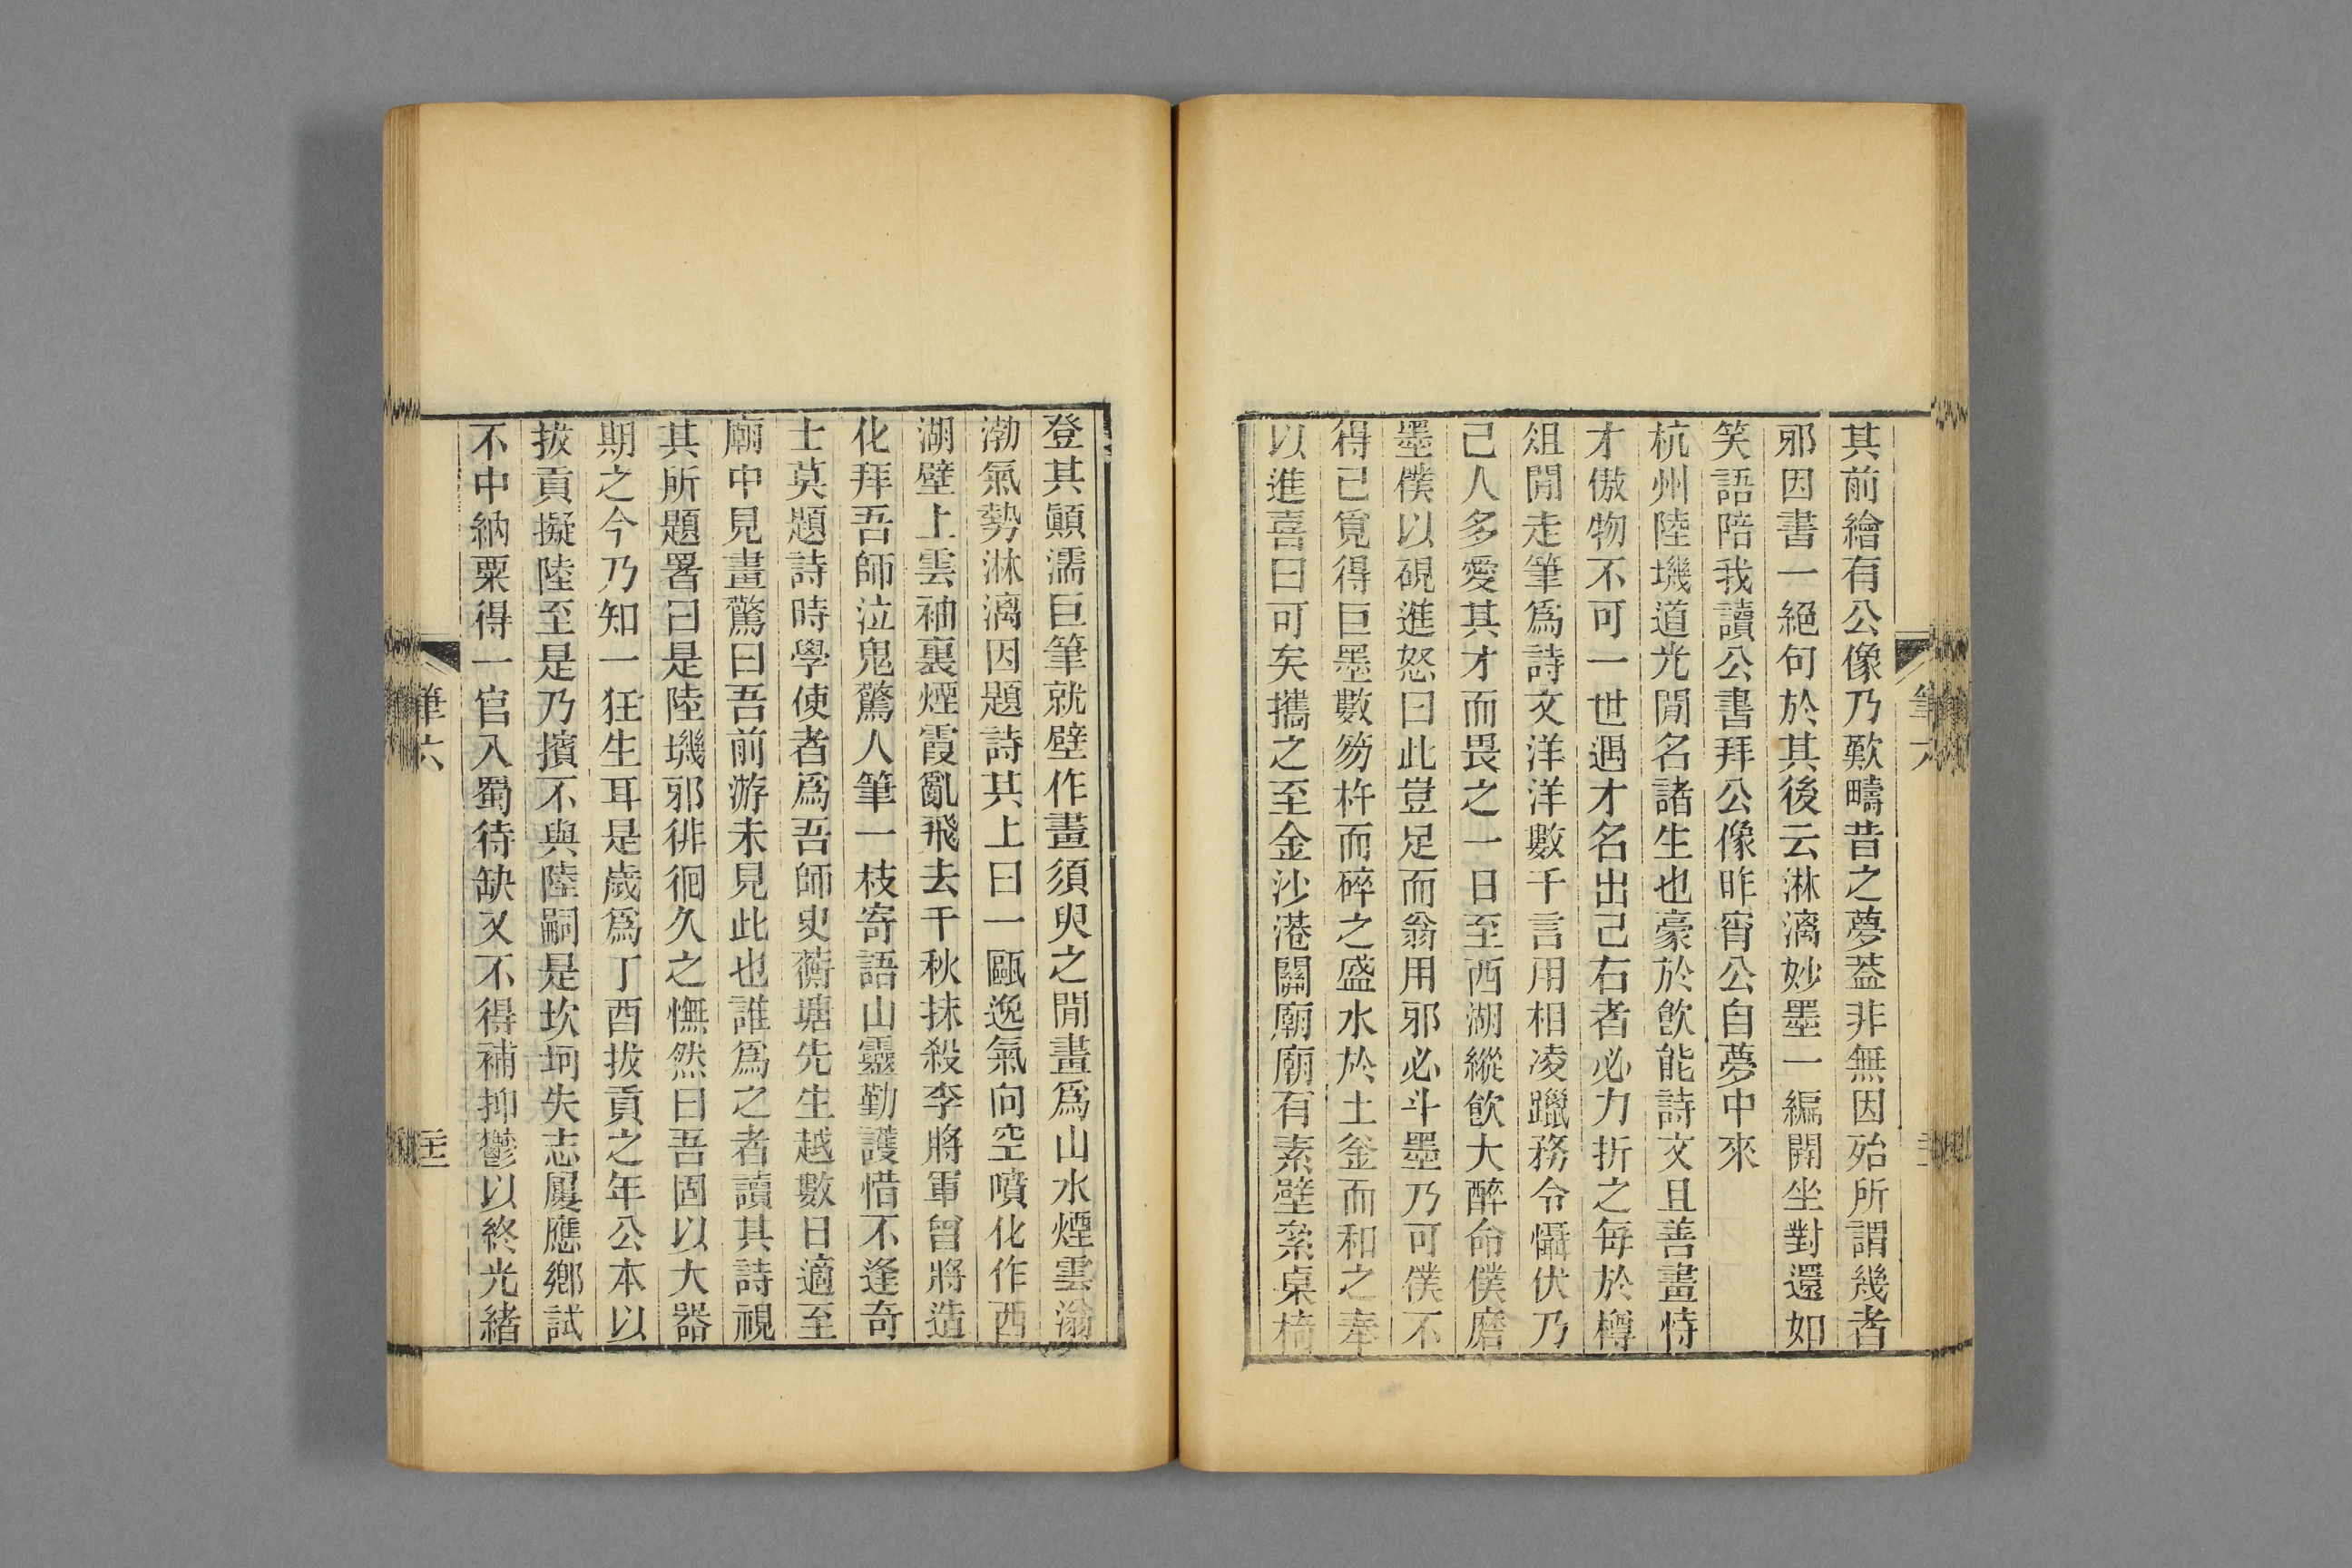 其前繪有公像乃歎疇昔之夢葢非無因殆所謂幾者
邪因書一絕句於其後云淋漓妙墨一編開坐對還如
笑語陪我讀公書拜公像昨宵公自夢中來
杭州陸璣道光閒名諸生也豪於飮能詩文且善畫恃
才傲物不可一世遇才名出己右者必力折之每於樽
俎閒走筆爲詩文洋洋數千言用相凌躐務令懾伏乃
己人多愛其才而畏之一日至西湖縱飮大醉命僕磨
墨僕以硯進怒曰此豈足而翁用邪必斗墨乃可僕不
得已覓得巨墨數笏杵而碎之盛水於土釜而和之奉
以進喜曰可矣攜之至金沙港關廟廟有素壁絫桌椅
登其顚濡巨筆就壁作畫須臾之閒畫爲山水煙雲滃
渤氣勢淋漓因題詩其上曰一甌逸氣向空噴化作西
湖壁上雲袖裏煙霞亂飛去千秋抹殺李將軍曾將造
化拜吾師泣鬼驚人筆一枝寄語山靈勤護惜不逢奇
士莫題詩時學使者爲吾師史蘅塘先生越數日適至
廟中見畫驚曰吾前游未見此也誰爲之者讀其詩視
其所題署曰是陸璣邪徘徊久之憮然曰吾固以大器
期之今乃知一狂生耳是歲爲丁酉拔貢之年公本以
拔貢擬陸至是乃擯不與陸嗣是坎坷失志屢應鄉試
不中納粟得一官入蜀待缺又不得補抑鬱以終光緖
筆六